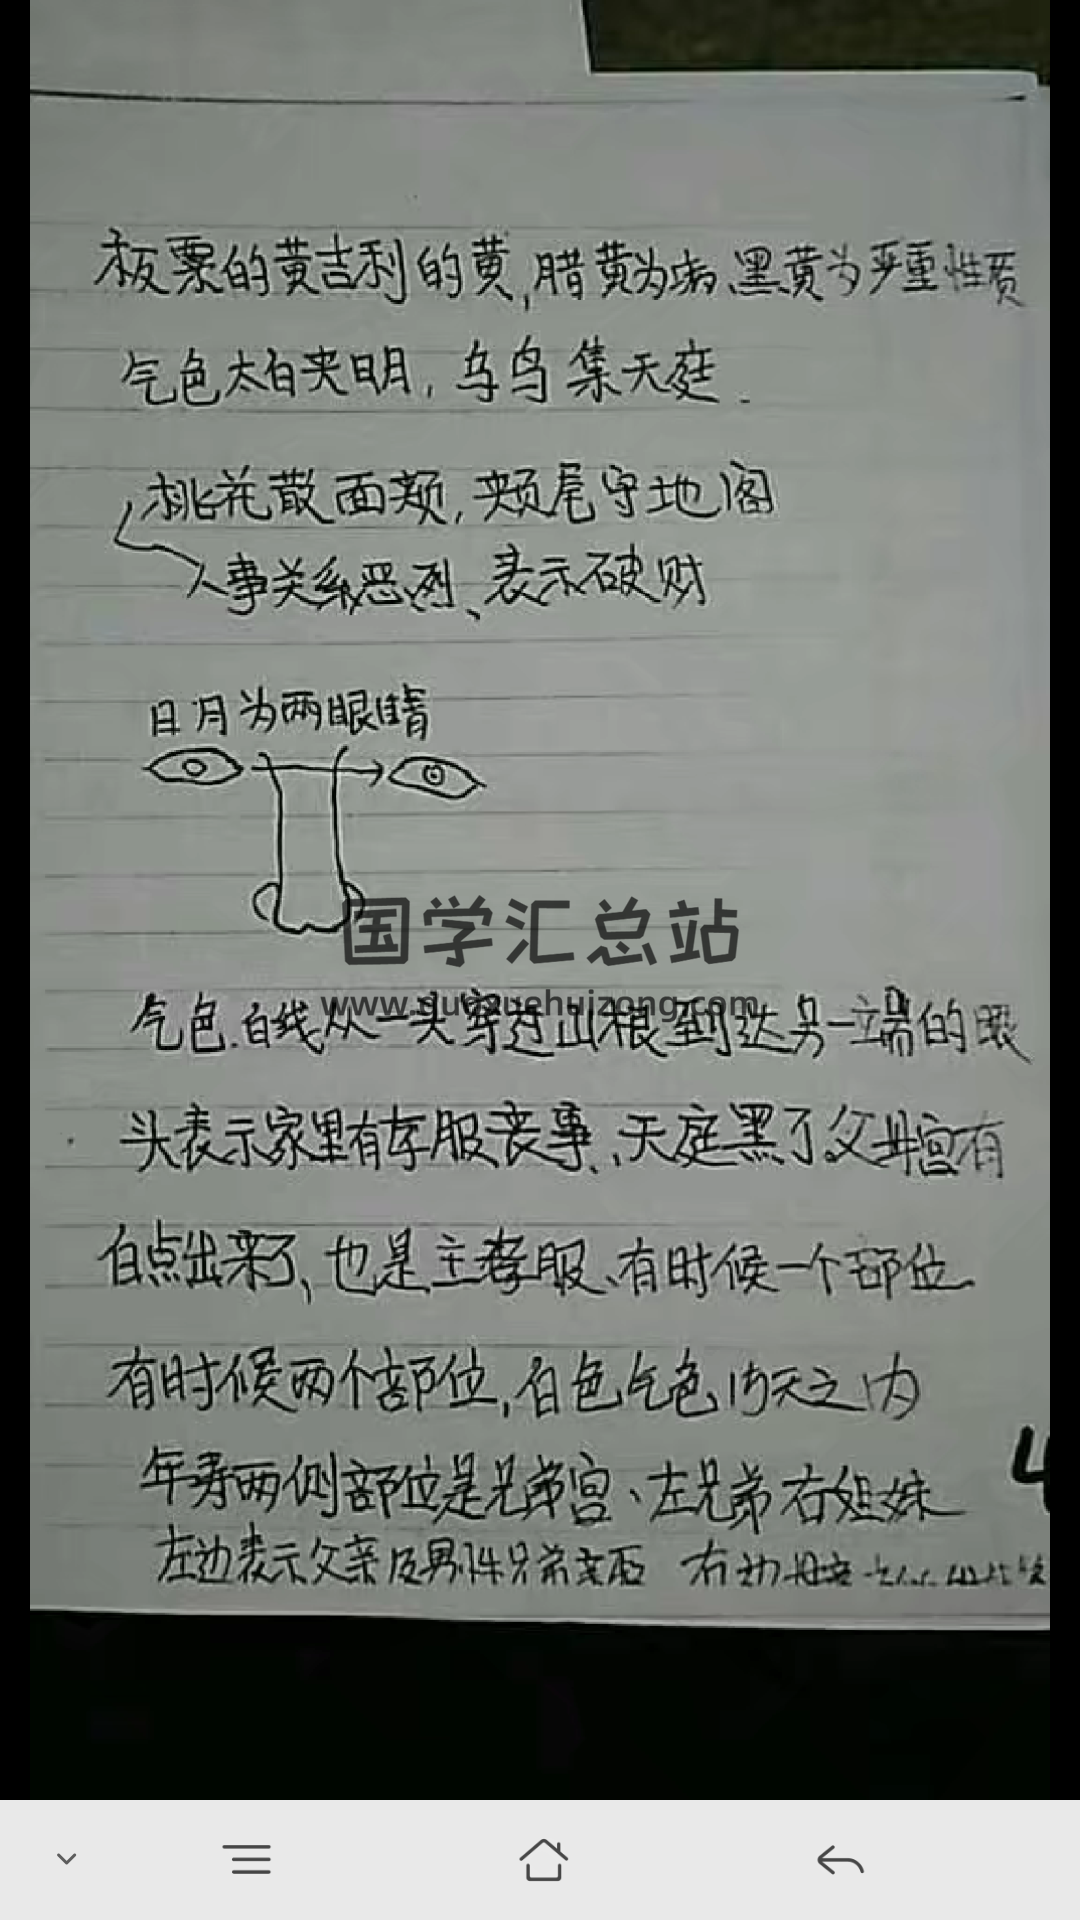 板栗的黄吉利的黄,腊黄为病、黑黄为严重性质
气色太白夹日月,乌鸟集天庭.
桃花散面颊,颊尾守地阁
人事关系恶列、表示破财
日月为两眼睛
国学汇总站
www.guoxuehuizong.com
气色.白线从一头穿过山根到达另一端的眼
头表示家里有孝服丧事、天庭黑了父母宫有
白点出来了、也是主孝服、有时候一个部位
有时候两个部位,白色气色15天之内
年寿两侧部位是兄弟宫、左兄弟右姐妹
左边表示父亲及男性兄弟 右边母亲
4